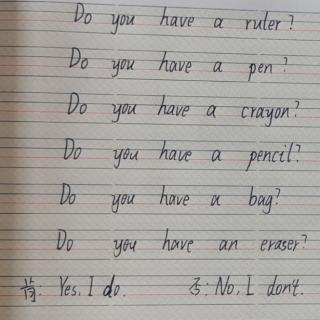 Do you have a ruler?
Do you have a pen?
Do you have a crayon?
Do you have a pencil?
Do you have a bag?
Do you have an eraser?
肯: Yes, I do. 否: No, I don't.